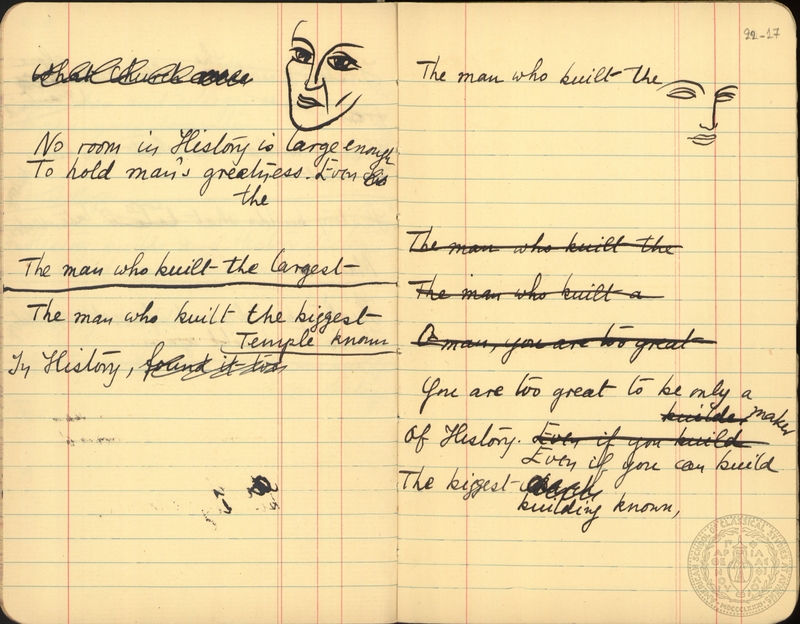 22-17
No room in History is large enough
To hold man's greatness. Even his
the
The man who built the largest
The man who built the biggest
Temple known
In History, found it too
The man who built the
The man who built the
The man who built a
O man, you are too great
You are too great to be only a
builder maker
Of History. Even if you build
Even if you can build
The biggest
building known,